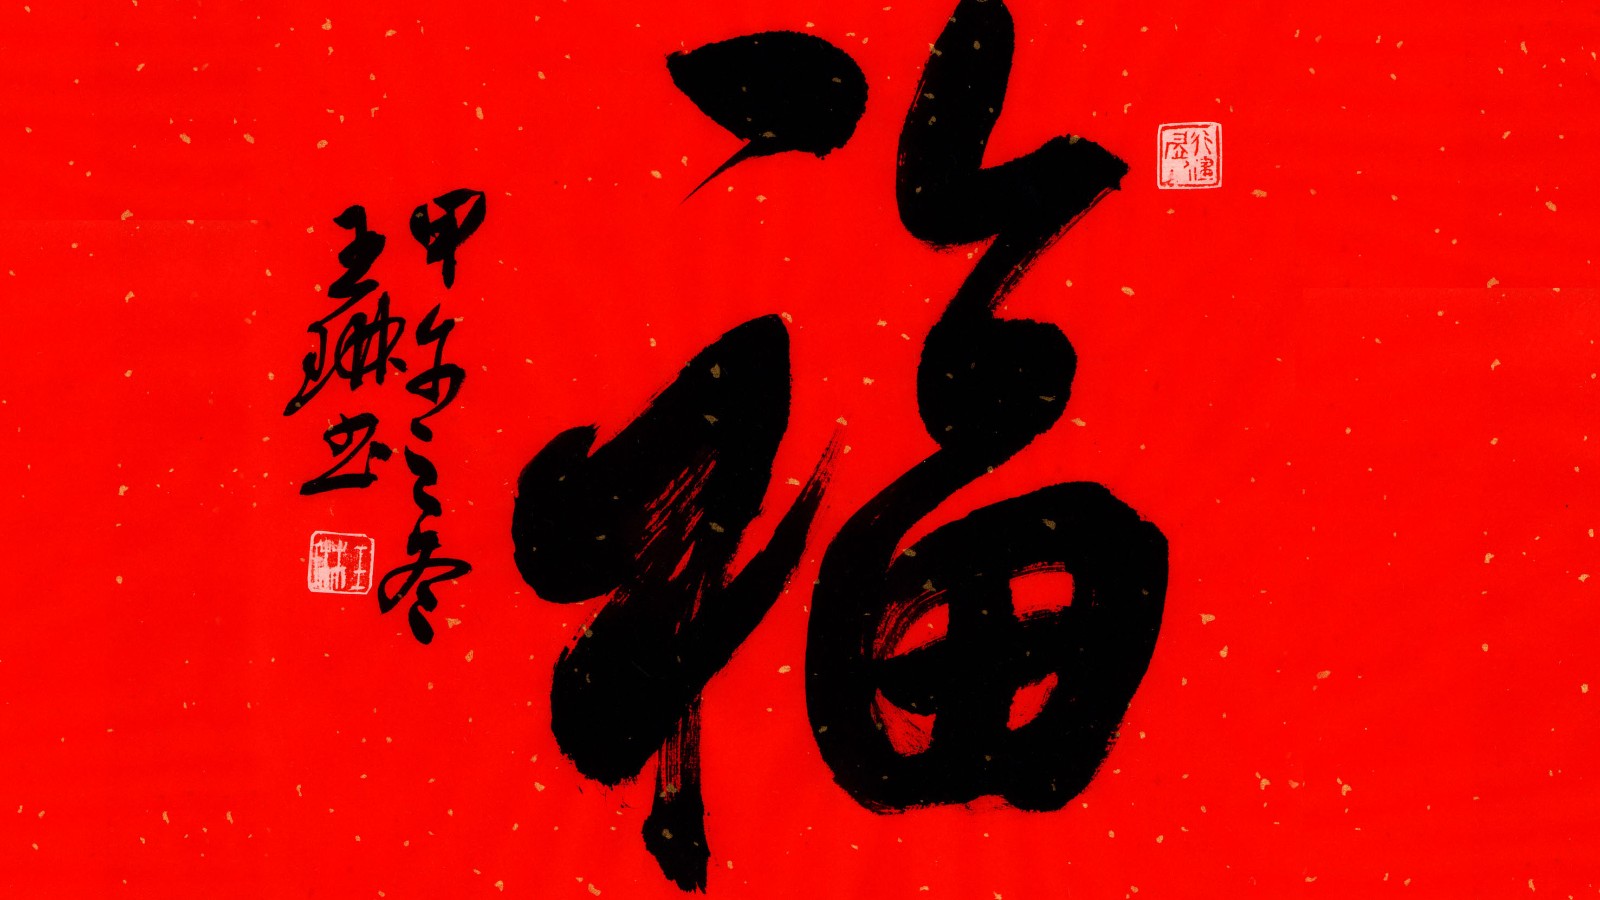 福
甲午之冬
王琳书
王琳